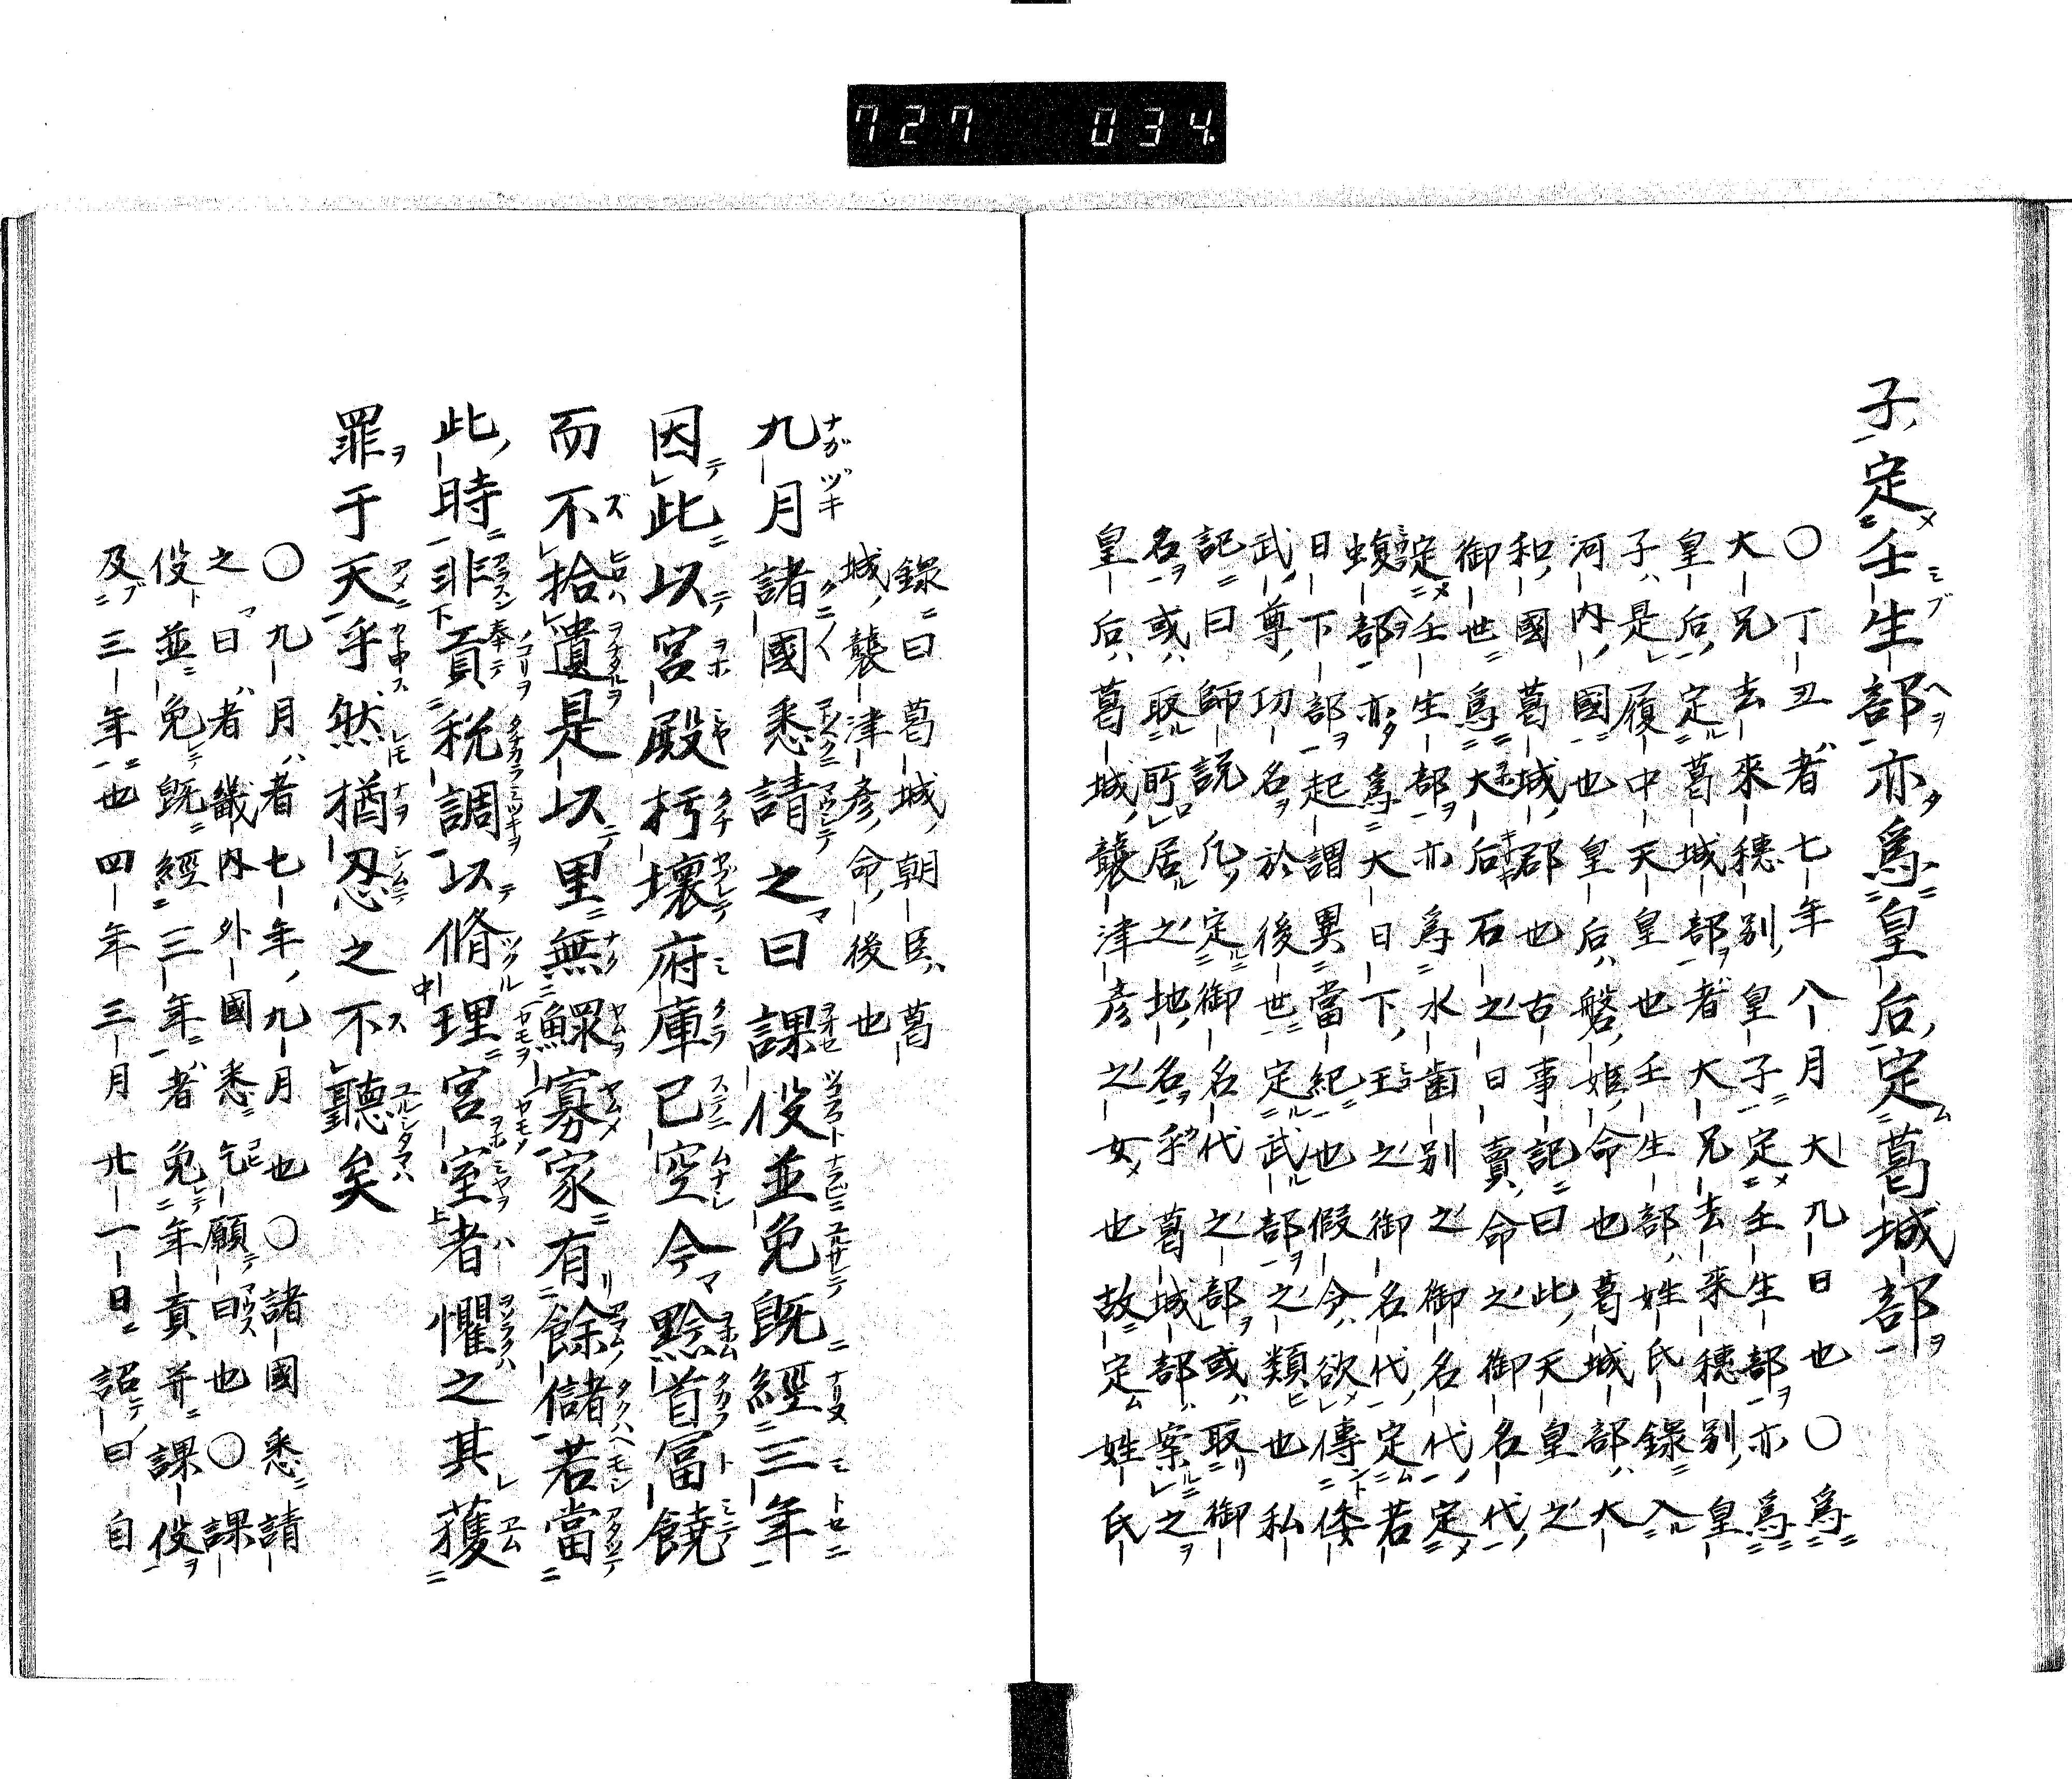 727 034.
子定壬生部亦爲皇后定葛城部
〇丁丑者七年八月大九日也〇爲
大兄去來穗別皇子定壬生部亦爲
皇后定葛城部者大兄去来穗別皇
子是履中天皇也壬生部姓氏録入
河内國也皇后磐姫命也葛城部大
和國葛城郡也古事記曰此天皇之
御世爲大后石之日賣命之御名代
定壬生部亦爲水歯別之御名代定
蝮部亦爲大日下王之御名代定若
日下部起謂異當紀也假令欲傳倭
武尊功名於後世定武部之類也私
記曰師説凡定御名代之部或取御
名或取所居之地名乎葛城部案之
皇后葛城襲津彦之女也故定姓氏
録曰葛城朝臣葛
城襲津彦命後也
九月諸國悉請之曰課役並免既經三年
因此以宮殿朽壞府庫已空今黔首富饒
而不拾遺是以里無鰥寡家有餘儲若當
此時非貢税調以脩理宮室者懼之其獲
罪于天乎然猶忍之不聽矣
〇九月者七年九月也〇諸國悉請
之曰者畿内外國悉乞願曰也〇課
役並免既經三年者免年貢并課役
及三年也四年三月廿一日詔曰自